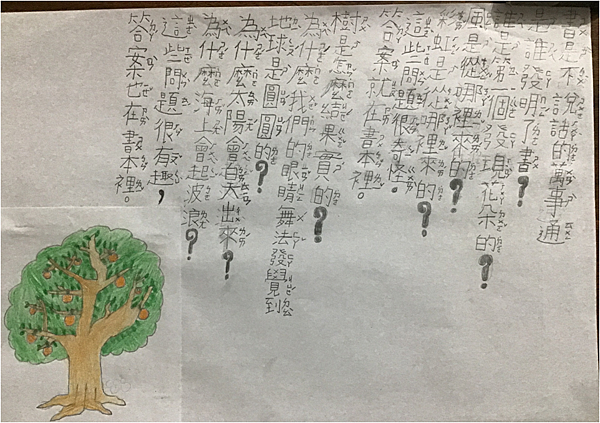 書是不說話的萬事通
是誰發明了書？
誰是第一個發現花朵的？
風是從哪裡來的？
彩虹是從哪裡來的？
這些問題很奇怪。
答案就在書本裡。
樹是怎麼結果實的？
為什麼我們的眼睛舞法發覺到
地球是圓圓的？
為什麼太陽會白天出來？
為什麼海上會起波浪？
這些問題很有趣，
答案也在書本裡。